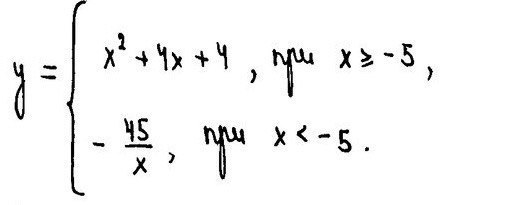 y = { x² + 4x + 4, при x ≥ -5,
- 45/x, при x < -5.